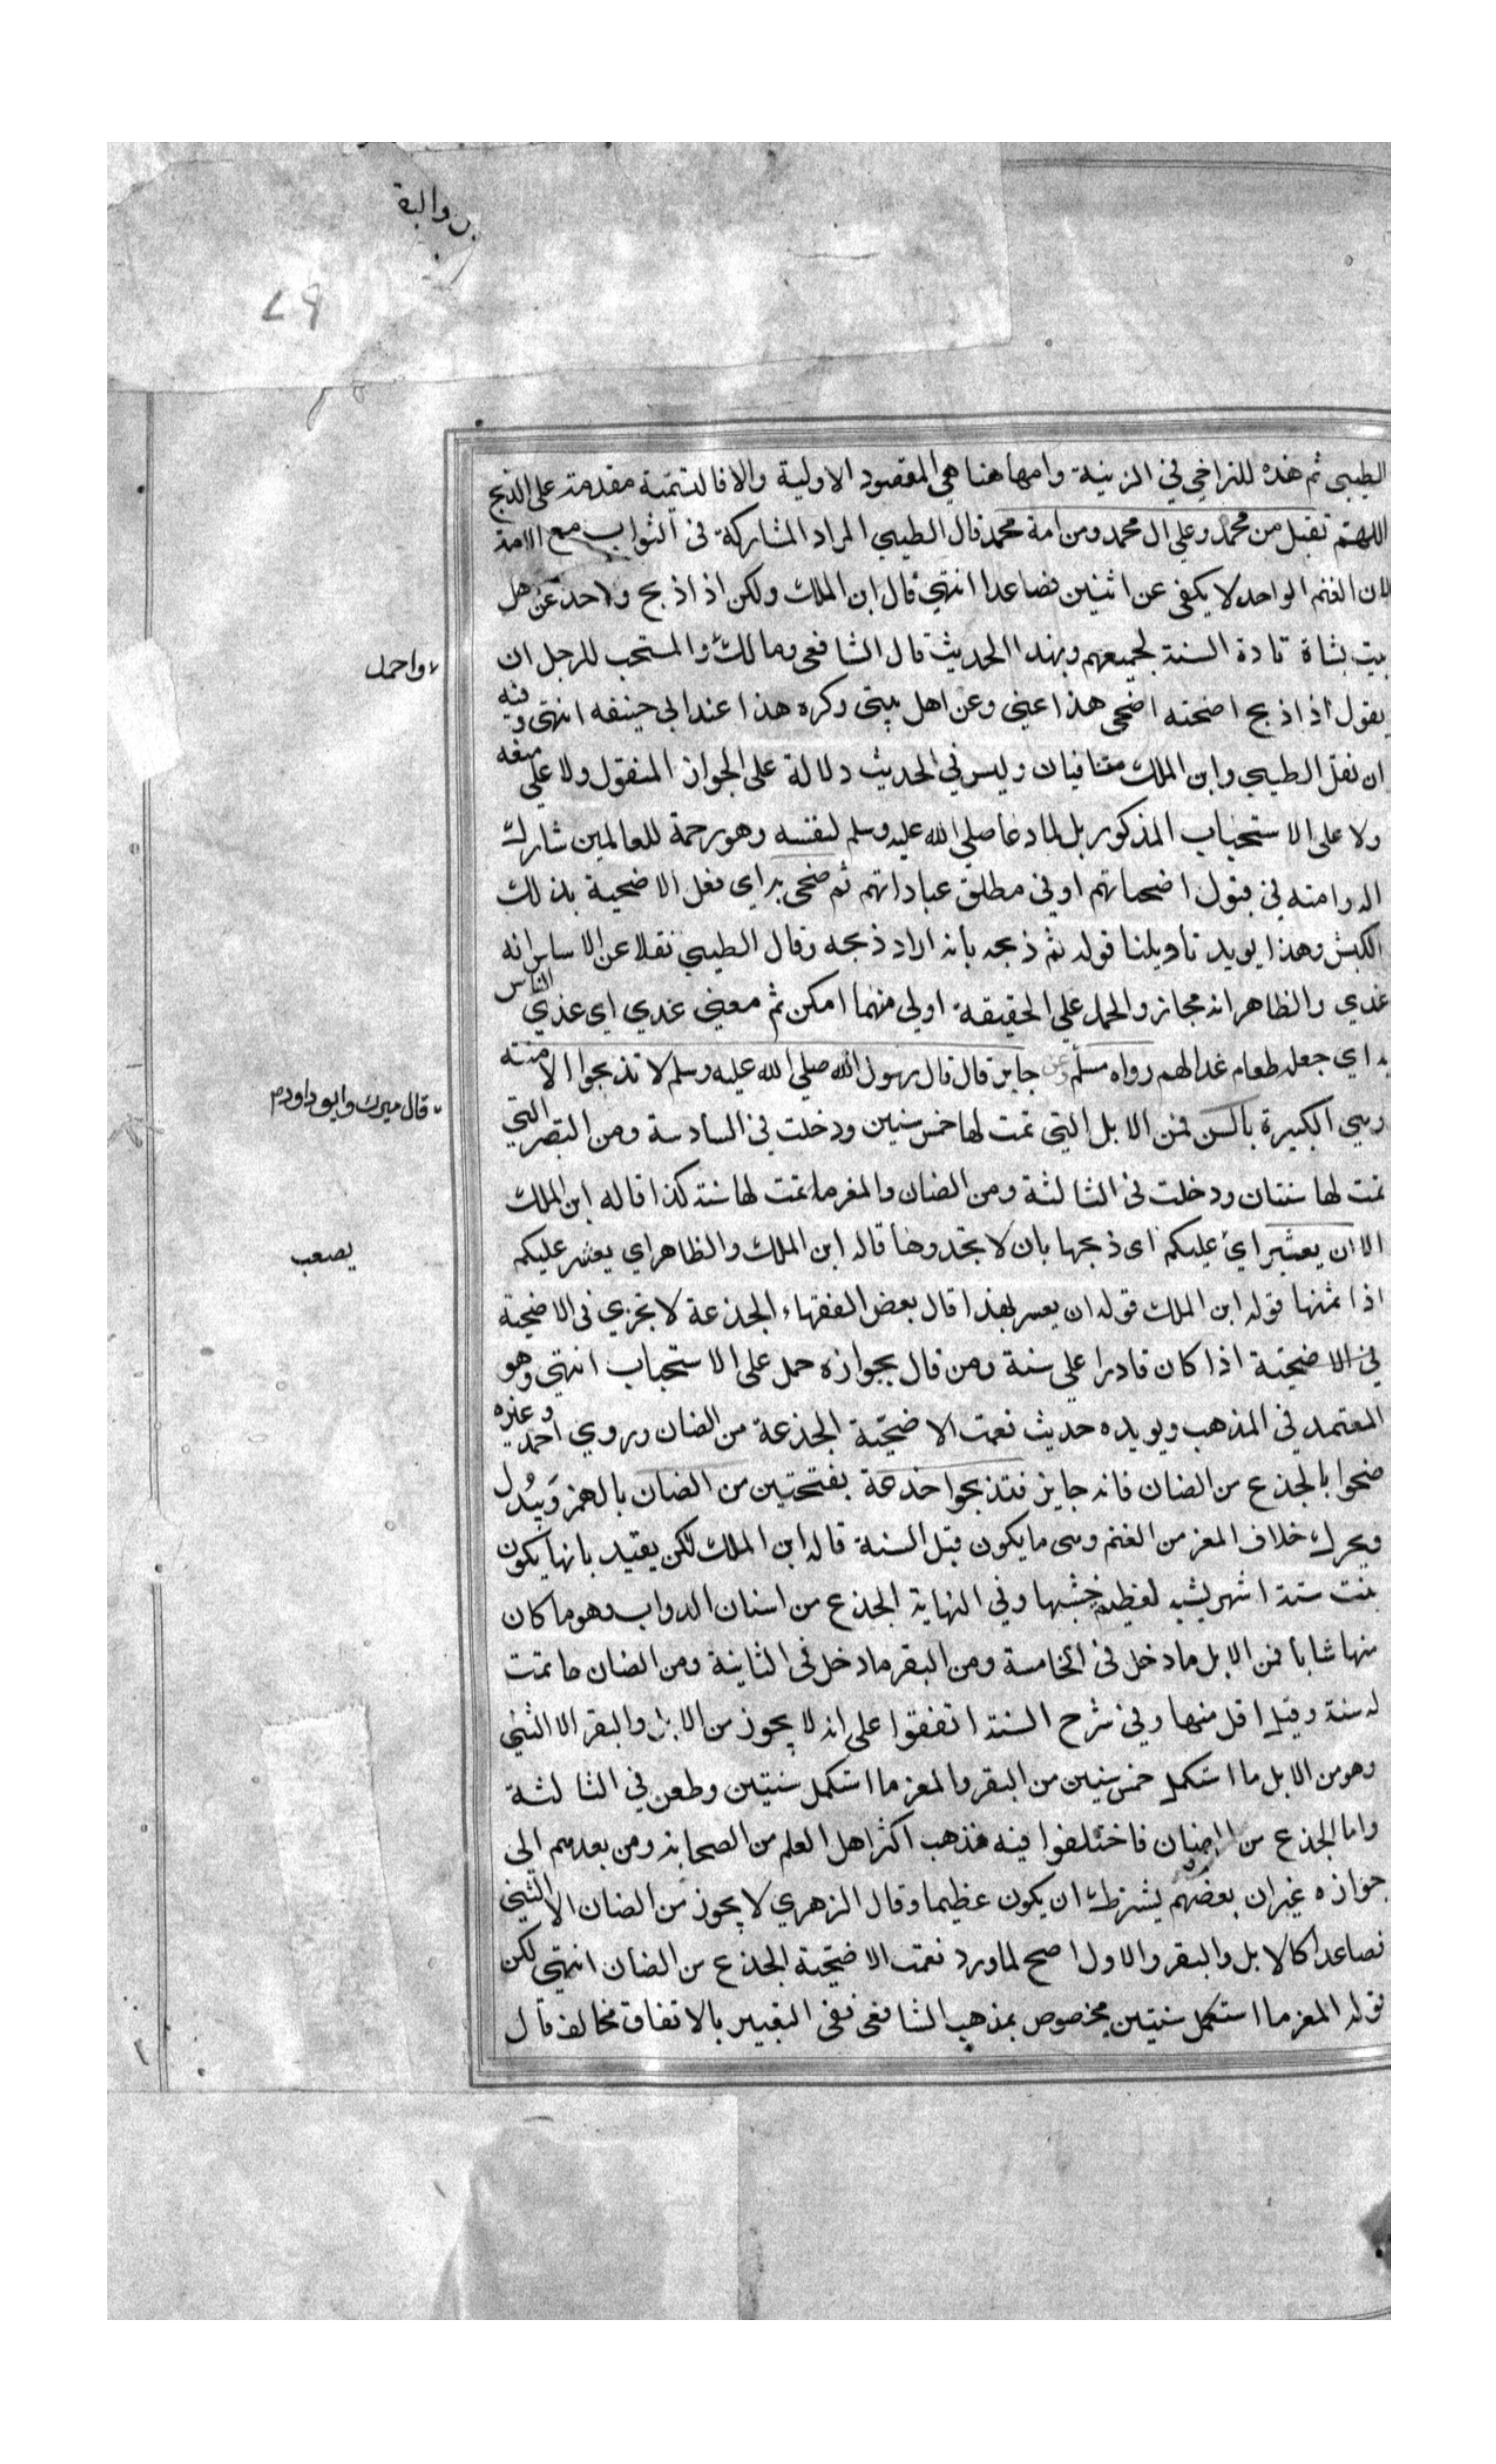 ن والبقر
الطيبي ثم هذه للتراخي في الرتبة وانها هنا هي المقصود الاولية والا فالتسمية مقدمة على الذبح
اللهم تقبل من محمد وعلي ال محمد ومن امة محمد قال الطيبي المراد المشاركة في الثواب مع الامة
لان الغنم الواحد لا يكفي عن اثنين فصاعدا انتهي قال ابن الملك ولكن اذا ذبح واحد عن اهل
بيت بشاة تادة السنة لجميعهم وبهذا الحديث قال الشافعي ومالك والمستحب للرجل ان
واحمد
يقول اذا ذبح اضحيته اضحي هذا عني وعن اهل بيتي وكره هذا عند ابي حنيفه انتهى وفيه
ان نقل الطيبي وابن الملك متنافيان وليس في الحديث دلالة على الجواز المنقول ولا على منعه
ولا على الاستحباب المذكور بل لما دعا صلي الله عليه وسلم لنفسه وهو رحمة للعالمين شارك
اله وامته في قبول اضحياتهم او في مطلق عباداتهم ثم ضحى به اي فعل الاضحية بذلك
الكبش وهذا يويد تاويلنا قوله ثم ذبحه بانه اراد ذبحه وقال الطيبي نقلا عن الاساس انه
غدي والظاهر انه مجاز والحمل علي الحقيقة اولي مهما امكن ثم معني غدي اي غذي الناس
به اي جعله طعام غدا لهم رواه مسلم وعن جابر قال قال رسول الله صلي الله عليه وسلم لا تذبحوا الا مسنة
قال ميرك وابو داود
وهي الكبيرة بالسن فمن الابل التي تمت لها خمس سنين ودخلت في السادسة ومن البقر التي
تمت لها سنتان ودخلت في الثالثة ومن الضان والمغر ما تمت لها سنة كذا قاله ابن الملك
الا ان يعسر اي عليكم اى ذبحها بان لا تجدوها قاله ابن الملك والظاهر اي يعسر عليكم
يصعب
اذا ثمنها قوله ابن الملك قوله ان يعسر بهذا قال بعض الفقهاء الجذعة لا تجزي في الاضحية
في الاضحية اذا كان قادرا علي سنة ومن قال بجوازه حمل على الاستحباب انتهي وهو
المعتمد في المذهب ويويده حديث نعمت الاضحية الجذعة من الضان وروي احمد وغيره
ضحوا بالجذع من الضان فانه جايز فتذبحوا جذعة بفتحتين من الضان بالهمز ويبدل
ويحرك خلاف المعز من الغنم وهى ما يكون قبل السنة قاله ابن الملك لكن يقيد بانها يكون
بنت ستة اشهر يشبه لعظم جثتها وفي النهاية الجذع من اسنان الدواب وهو ما كان
منها شابا فمن الابل ما دخل في الخامسة ومن البقر ما دخل في الثانية ومن الضان ما تمت
له سنة وقيل اقل منها وفي شرح السنة اتفقوا على انه لا يجوز من الابل والبقر الا الثني
وهو من الابل ما استكمل خمس سنين من البقر والمعز ما استكمل سنتين وطعن في الثالثة
واما الجذع من الضان فاختلفوا فيه فذهب اكثر اهل العلم من الصحابة ومن بعدهم الى
جوازه غير ان بعضهم يشترط ان يكون عظيما وقال الزهري لا يجوز من الضان الا الثني
فصاعدا كالابل والبقر والاول اصح لما ورد نعمت الاضحية الجذع من الضان انتهي لكن
قوله المعز ما استكمل سنتين مخصوص بمذهب الشافعي ففي التعبير بالاتفاق مخالفة قال